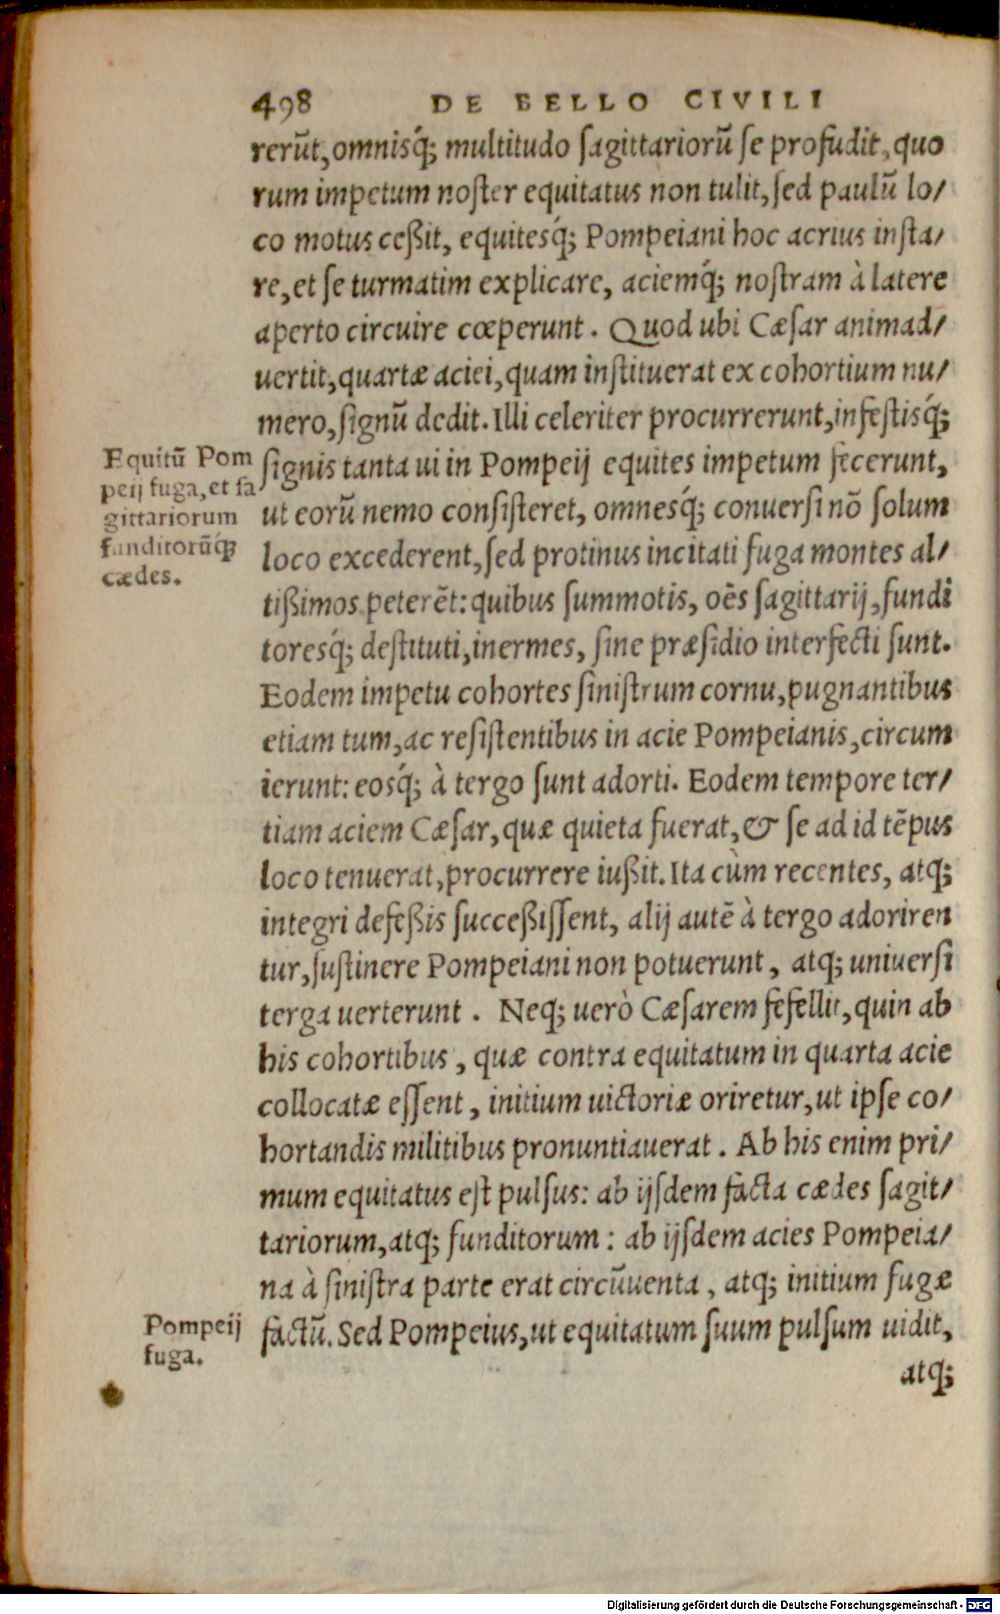 498 DE BELLO CIVILI
rerūt, omnisq́; multitudo ſagittariorū ſe profudit, quo
rum impetum noſter equitatus non tulit, ſed paulū lo/
co motus ceßit, equitesq́; Pompeiani hoc acrius inſta/
re, et ſe turmatim explicare, aciemq́; noſtram à latere
aperto circuire cœperunt. Quod ubi Cæſar animad/
uertit, quartæ aciei, quam inſtituerat ex cohortium nu/
mero, ſignū dedit. Illi celeriter procurrerunt, infeſtisq́;
ſignis tanta ui in Pompeij equites impetum fecerunt,
ut eorū nemo conſiſteret, omnesq́; conuerſi nō ſolum
loco excederent, ſed protinus incitati fuga montes al/
tißimos peterēt: quibus ſummotis, oēs ſagittarij, fundi
toresq́; deſtituti, inermes, ſine præſidio interfecti ſunt.
Eodem impetu cohortes ſiniſtrum cornu, pugnantibus
etiam tum, ac reſiſtentibus in acie Pompeianis, circum
ierunt: eosq́; à tergo ſunt adorti. Eodem tempore ter/
tiam aciem Cæſar, quæ quieta fuerat, & ſe ad id tēpus
loco tenuerat, procurrere iußit. Ita cùm recentes, atq;
integri defeßis succeßiſſent, alij autē à tergo adoriren
tur, ſuſtinere Pompeiani non potuerunt, atq; uniuerſi
terga uerterunt. Neq; uerò Cæſarem fefellit, quin ab
his cohortibus, quæ contra equitatum in quarta acie
collocatæ eſſent, initium uictoriæ oriretur, ut ipſe co/
hortandis militibus pronuntiauerat. Ab his enim pri/
mum equitatus eſt pulſus: ab ijſdem facta cædes ſagit/
tariorum, atq; funditorum: ab ijſdem acies Pompeia/
na à ſiniſtra parte erat circūuenta, atq; initium fugæ
factū. Sed Pompeius, ut equitatum ſuum pulſum uidit,
atq;
Equitū Pom
peij fuga, et ſa
gittariorum
funditorūq́;
cædes.
Pompeij
fuga.
Digitalisierung gefördert durch die Deutsche Forschungsgemeinschaft - DFG